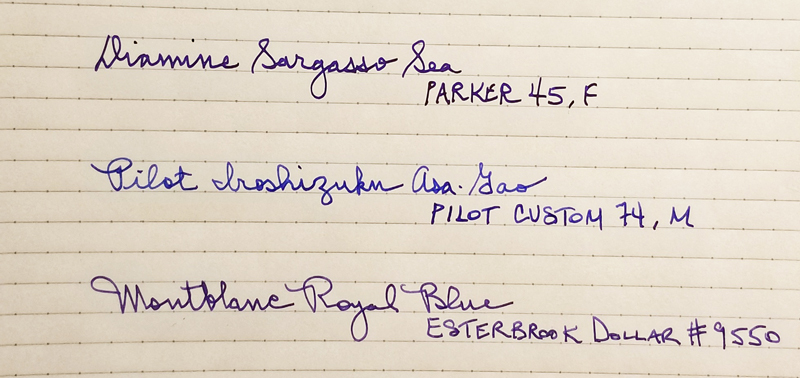 Diamine Sargasso Sea
PARKER 45, F
Pilot Iroshizuku Asa-Gao
PILOT CUSTOM 74, M
Montblanc Royal Blue
ESTERBROOK DOLLAR #9550